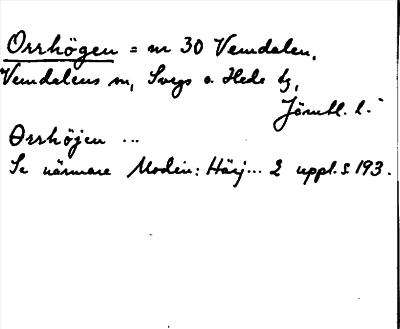 Orrhögen = nr 30 Vemdalen,
Vemdalens sn, Svegs o. Hede tg,
Jämtl. l.
Orrhöjen ...
Se närmare Modin: Härj... 2 uppl. s. 193.